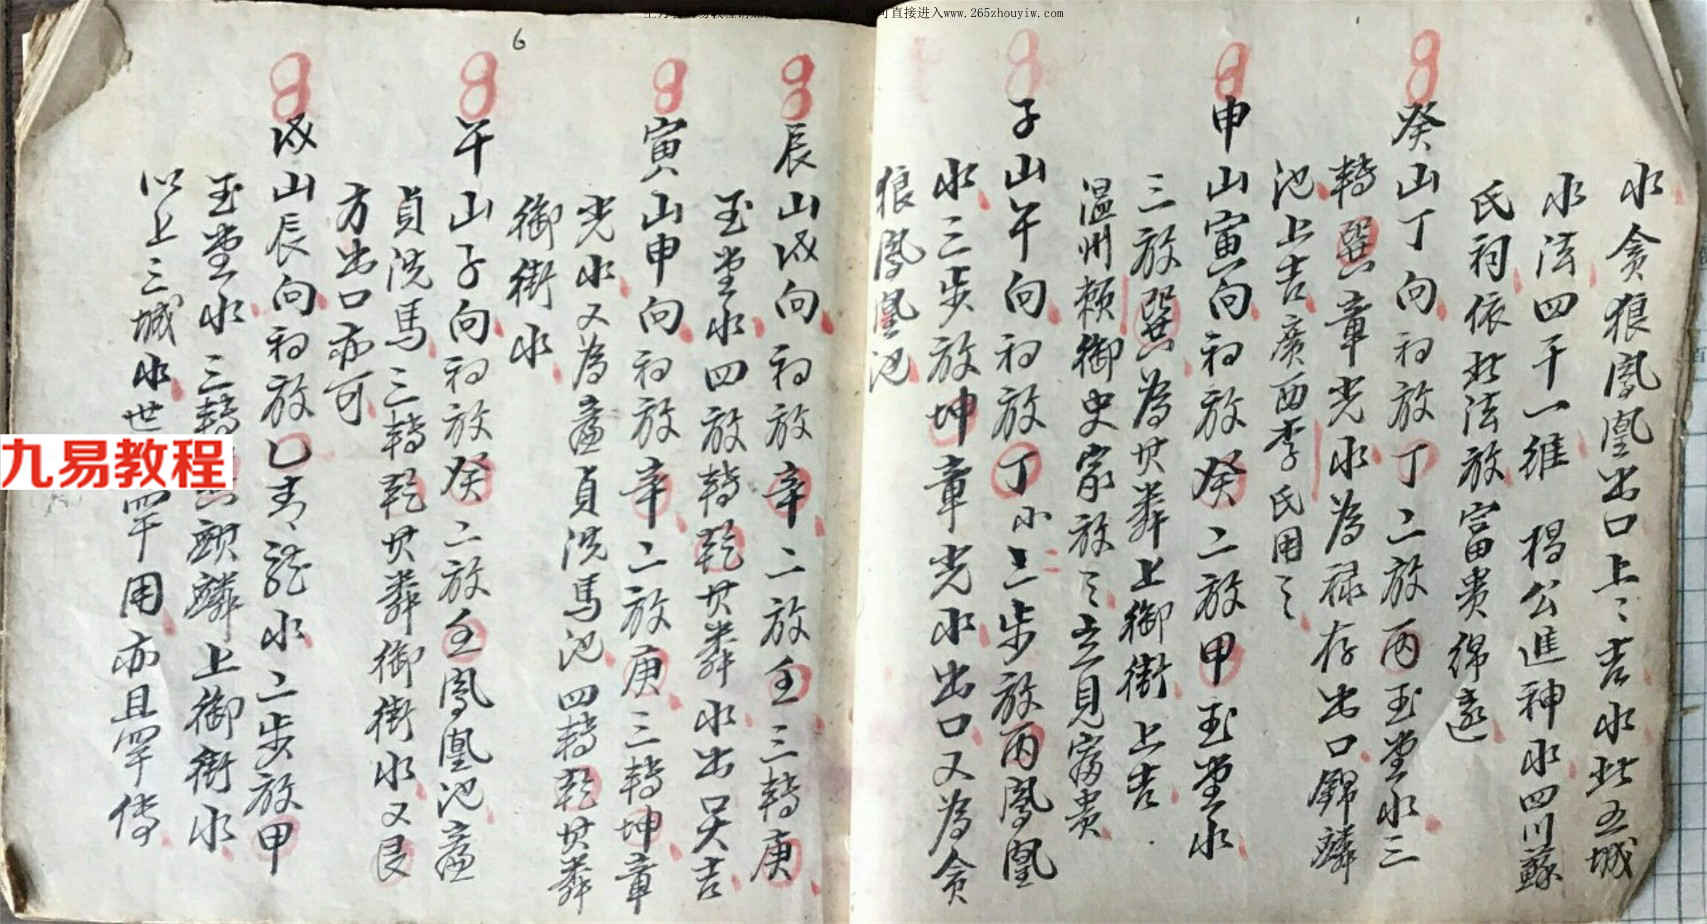 可直接进入www.265zhouyiw.com
水贪狼鳳凰出口上〻吉水此五城
水法四千一維 楊公進神水四川蘇
氏祠依此法放富貴綿遠
癸山丁向初放丁二放丙玉堂水三
轉巽六章光水為禄存出口錦麟
池上吉廣西李氏用之
申山寅向初放癸二放甲玉堂水
三放巽為贯券上御街上吉
温州赖御史家放之立見富贵
子山午向初放丁小上步放丙鳳凰
水三步放坤章光水出口又為贪
狼鳳凰池
6
辰山戌向初放辛二放壬三轉庚
玉堂水四放轉乾贯券水出口大吉
寅山申向初放辛二放庚三轉坤章
光水又為廉貞洗馬池四轉乾贯券
御街水
午山子向初放癸二放壬鳳凰池廉
貞洗馬三轉乾贯券御街水又艮
方出口亦可
戌山辰向初放乙青龍水二步放甲
玉堂水三轉麒麟上御街水
以上三城水世罕用亦且罕傳
九易教程